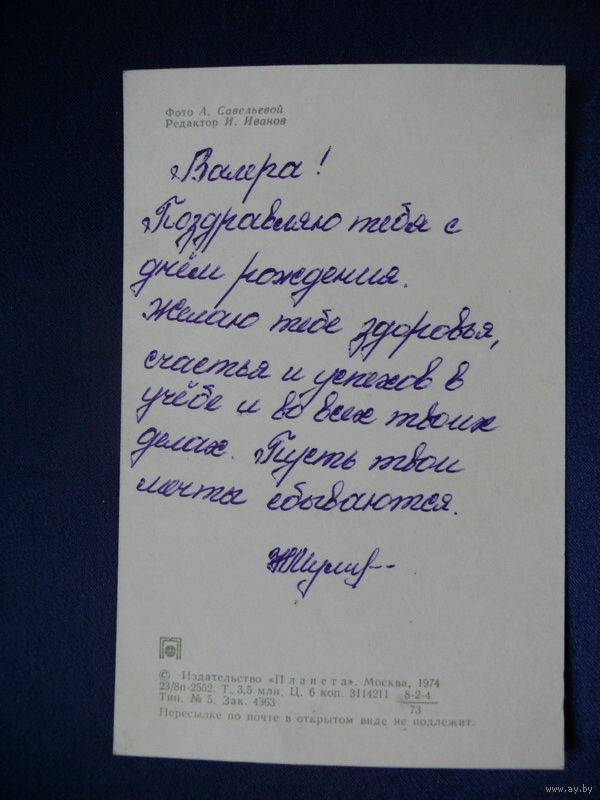 Фото А. Савельевой
Редактор И. Иванов
Валера!
Поздравляю тебя с
днём рождения.
Желаю тебе здоровья,
счастья и успехов в
учёбе и во всех твоих
делах. Пусть твои
мечты сбываются.
© Издательство «Планета». Москва, 1974
23/8п-2552. Т. 3,5 млн. Ц. 6 коп. 3114211 8-2-4
73
Тип. № 5. Зак. 4363
Пересылке по почте в открытом виде не подлежит.
www.ay.by